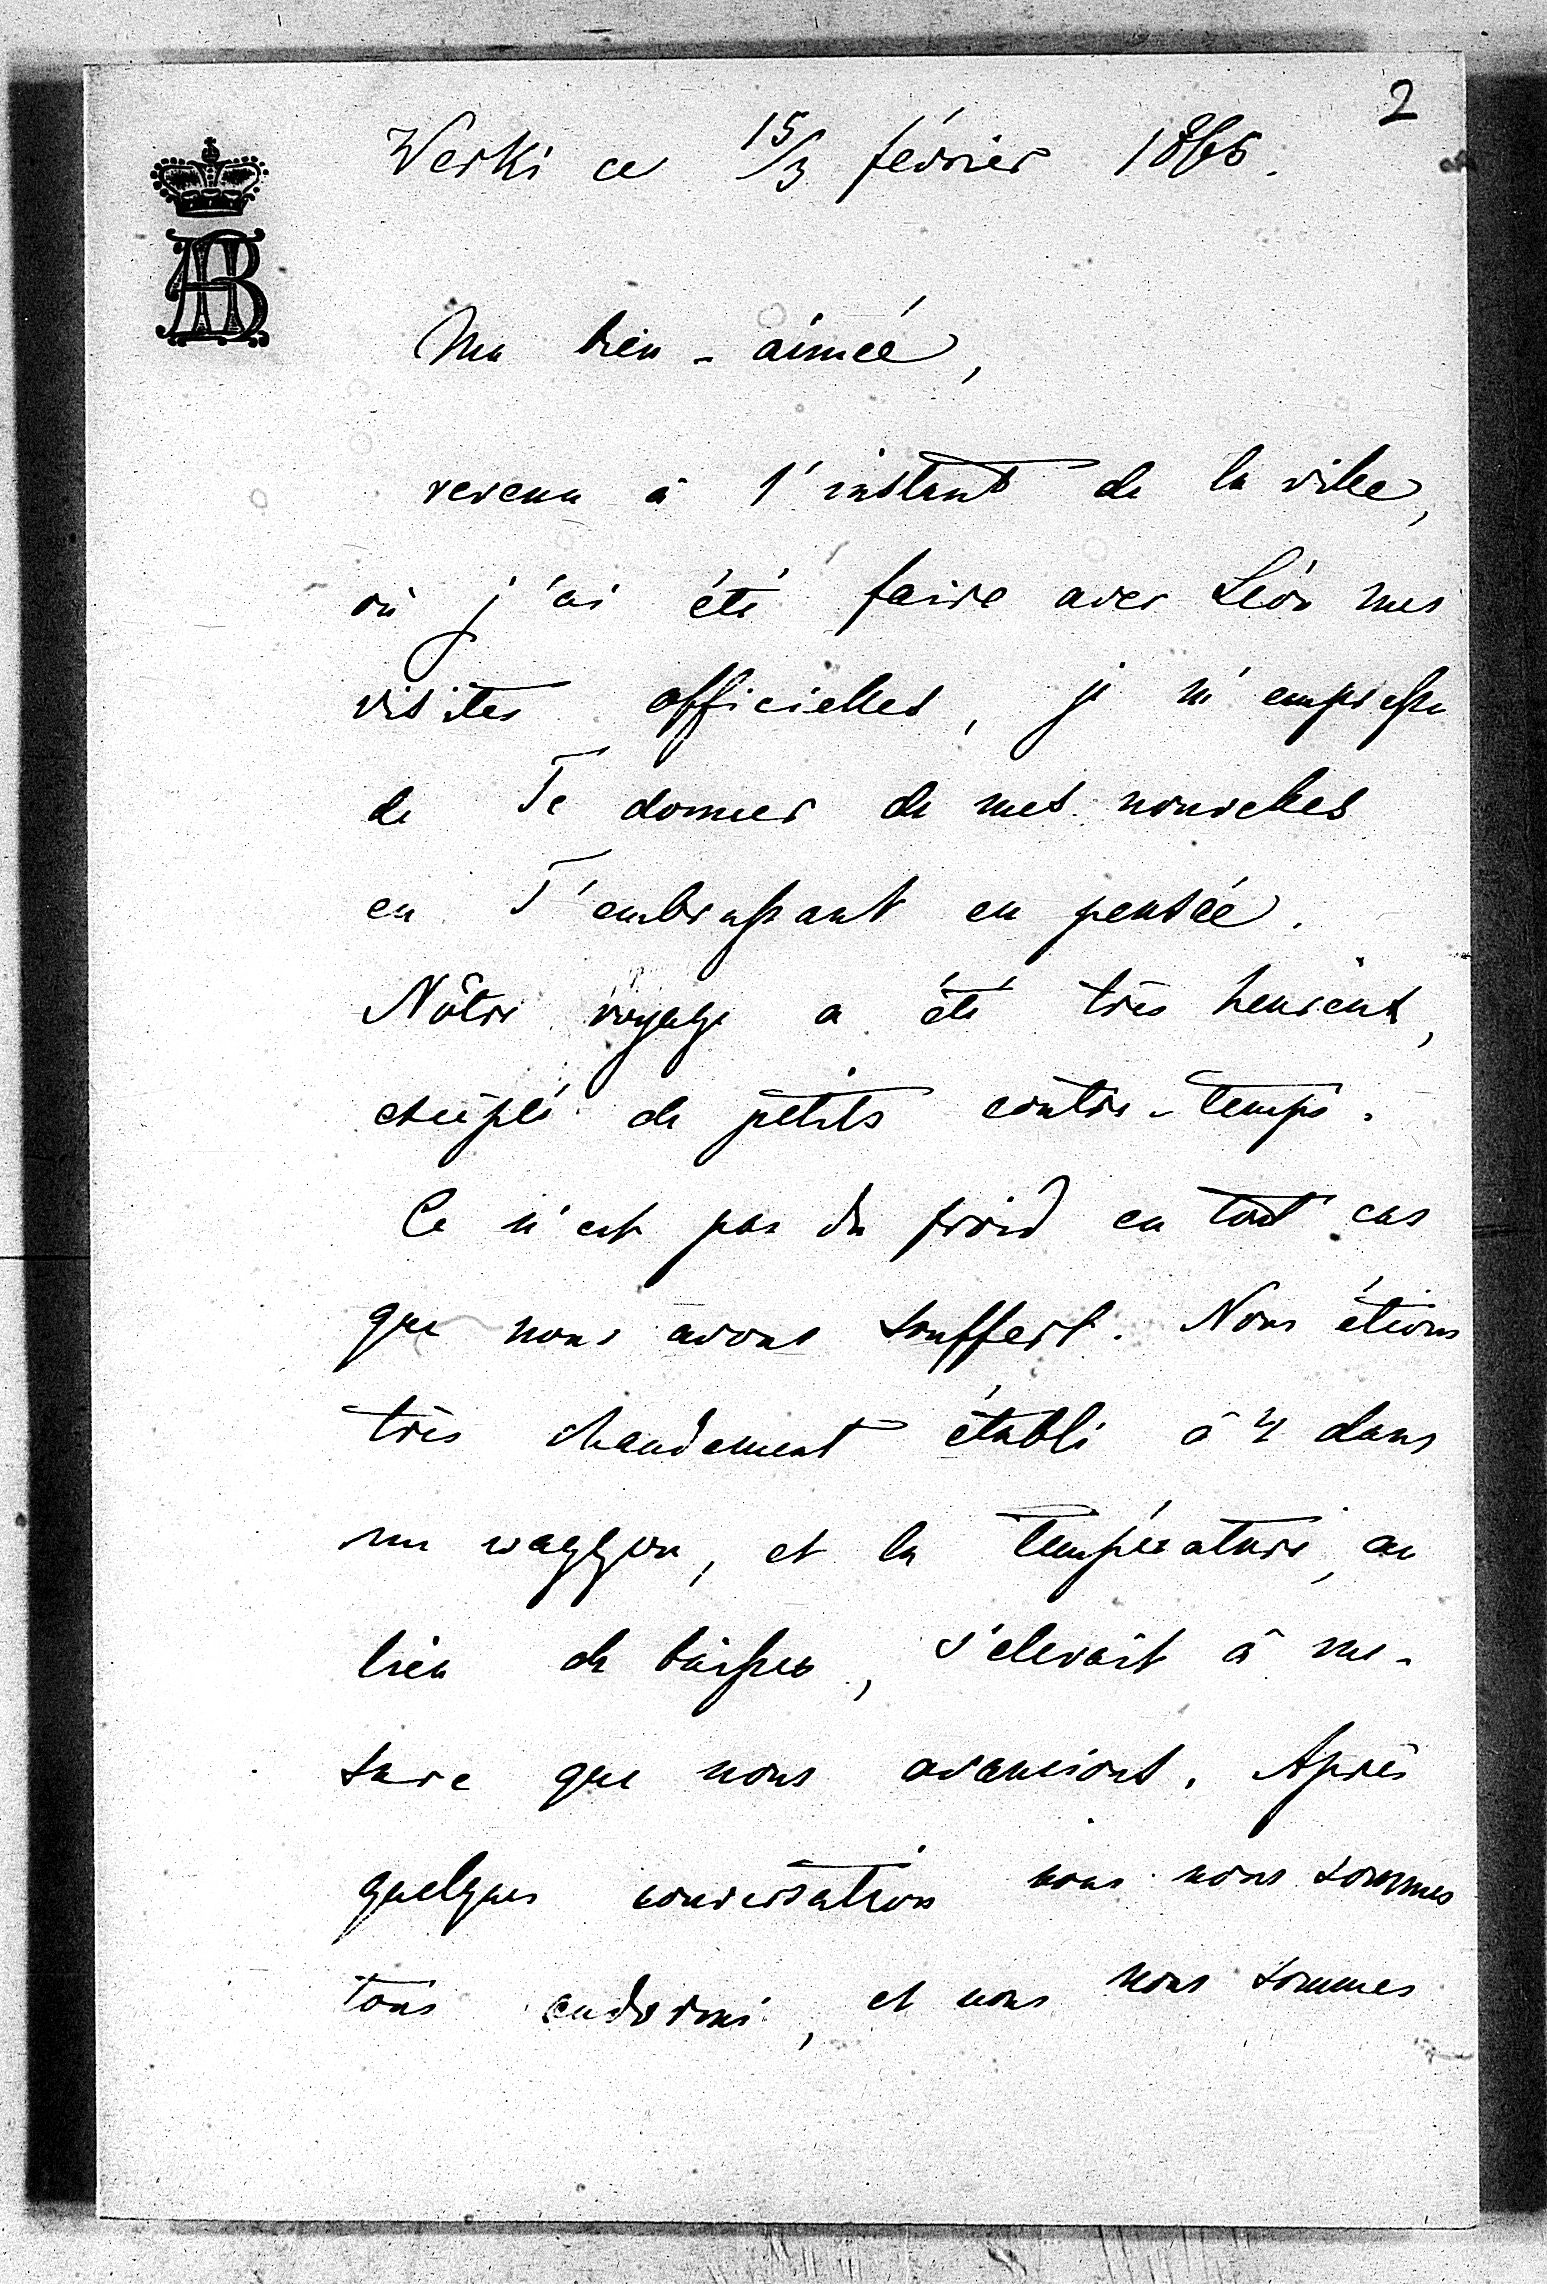 2
Werki ce 15/3 février 1866.
AB
Ma bien-aimée,
revenu à l'instant de la ville,
où j'ai été faire avec Léon mes
visites officielles, je m'empresse
de Te donner de mes nouvelles
en T'embrassant en pensée.
Nôtre voyage a été très heureux,
de petits contre-temps.
Ce n'est pas du froid en tout cas
que nous avons souffert. Nous étions
très chaudement établi à 4 dans
un waggon, et la température, au
lieu de baisser, s'elevait à me-
sure que nous avancions. Après
quelques conversation nous nous sommes
tous endormi, et nous nous sommes